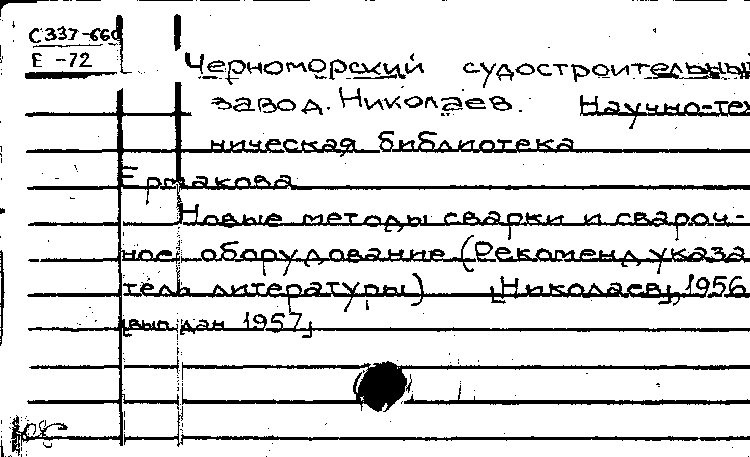 С337-660
Е-72
Черноморский судостроительный
завод. Николаев. Научно-тех
ническая библиотека
Ермакова
Новые методы сварки и свароч-
ное оборудование (Рекоменд указа
тель литературы) [Николаев], 1956
[вып дан 1957]